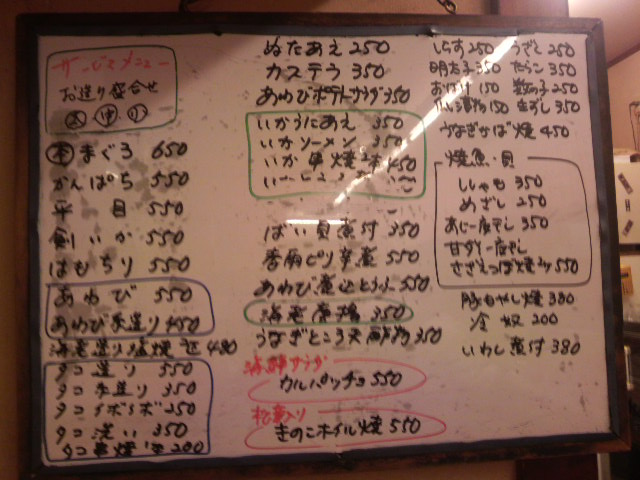 サービスメニュー
お造り盛合せ
大 中 小
本 まぐろ 650
かんぱち 550
平目 550
剣いか 550
はもちり 550
あわび 550
あわび造り 450
海老造り 塩焼 480
タコ造り 550
タコ 造り 350
タコイボイボ 350
タコ洗い 350
タコ串焼 200
ぬたあえ 250
カステラ 350
あわびポテトサラダ 350
いかうにあえ 350
いかソーメン 350
いか串焼 2本 450
ばい貝煮付 350
ピリ辛煮 550
あわび煮込 550
海老 350
うなぎところ天酢物 350
海鮮サラダ
カルパッチョ 550
松茸入り
きのこホイル焼 550
しらす 250 うざく 250
明太子 350 たらこ 350
おばけ 150 数の子 250
漬物 150 きずし 350
うなぎかば焼 450
焼魚・貝
ししゃも 350
めざし 250
あじ一夜干し 350
甘ダイ一夜干し
さざえつぼ焼 550
豚もやし焼 380
冷奴 200
いわし煮付 380